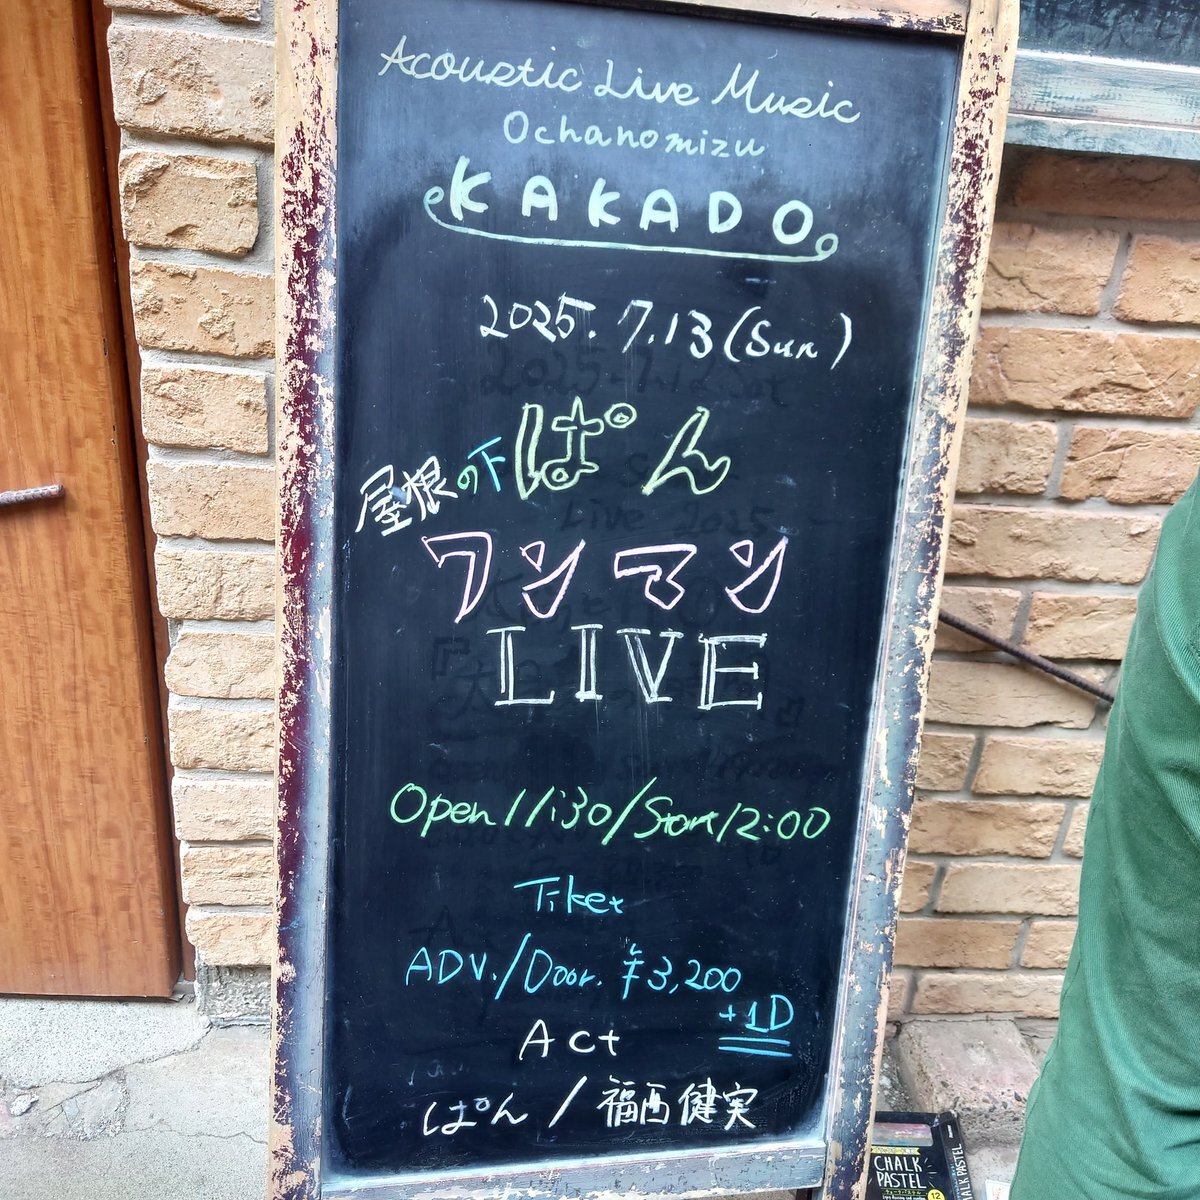 Acoustic Live Music
Ochanomizu
KAKADO
2025.7.13(Sun)
屋根の下ぱん
ワンマン
LIVE
Open11:30/Start12:00
Tiket
ADV./Door.¥3,200
+1D
Act
ぱん/福西健実
CHALK
PASTEL
12
CHALK PASTEL